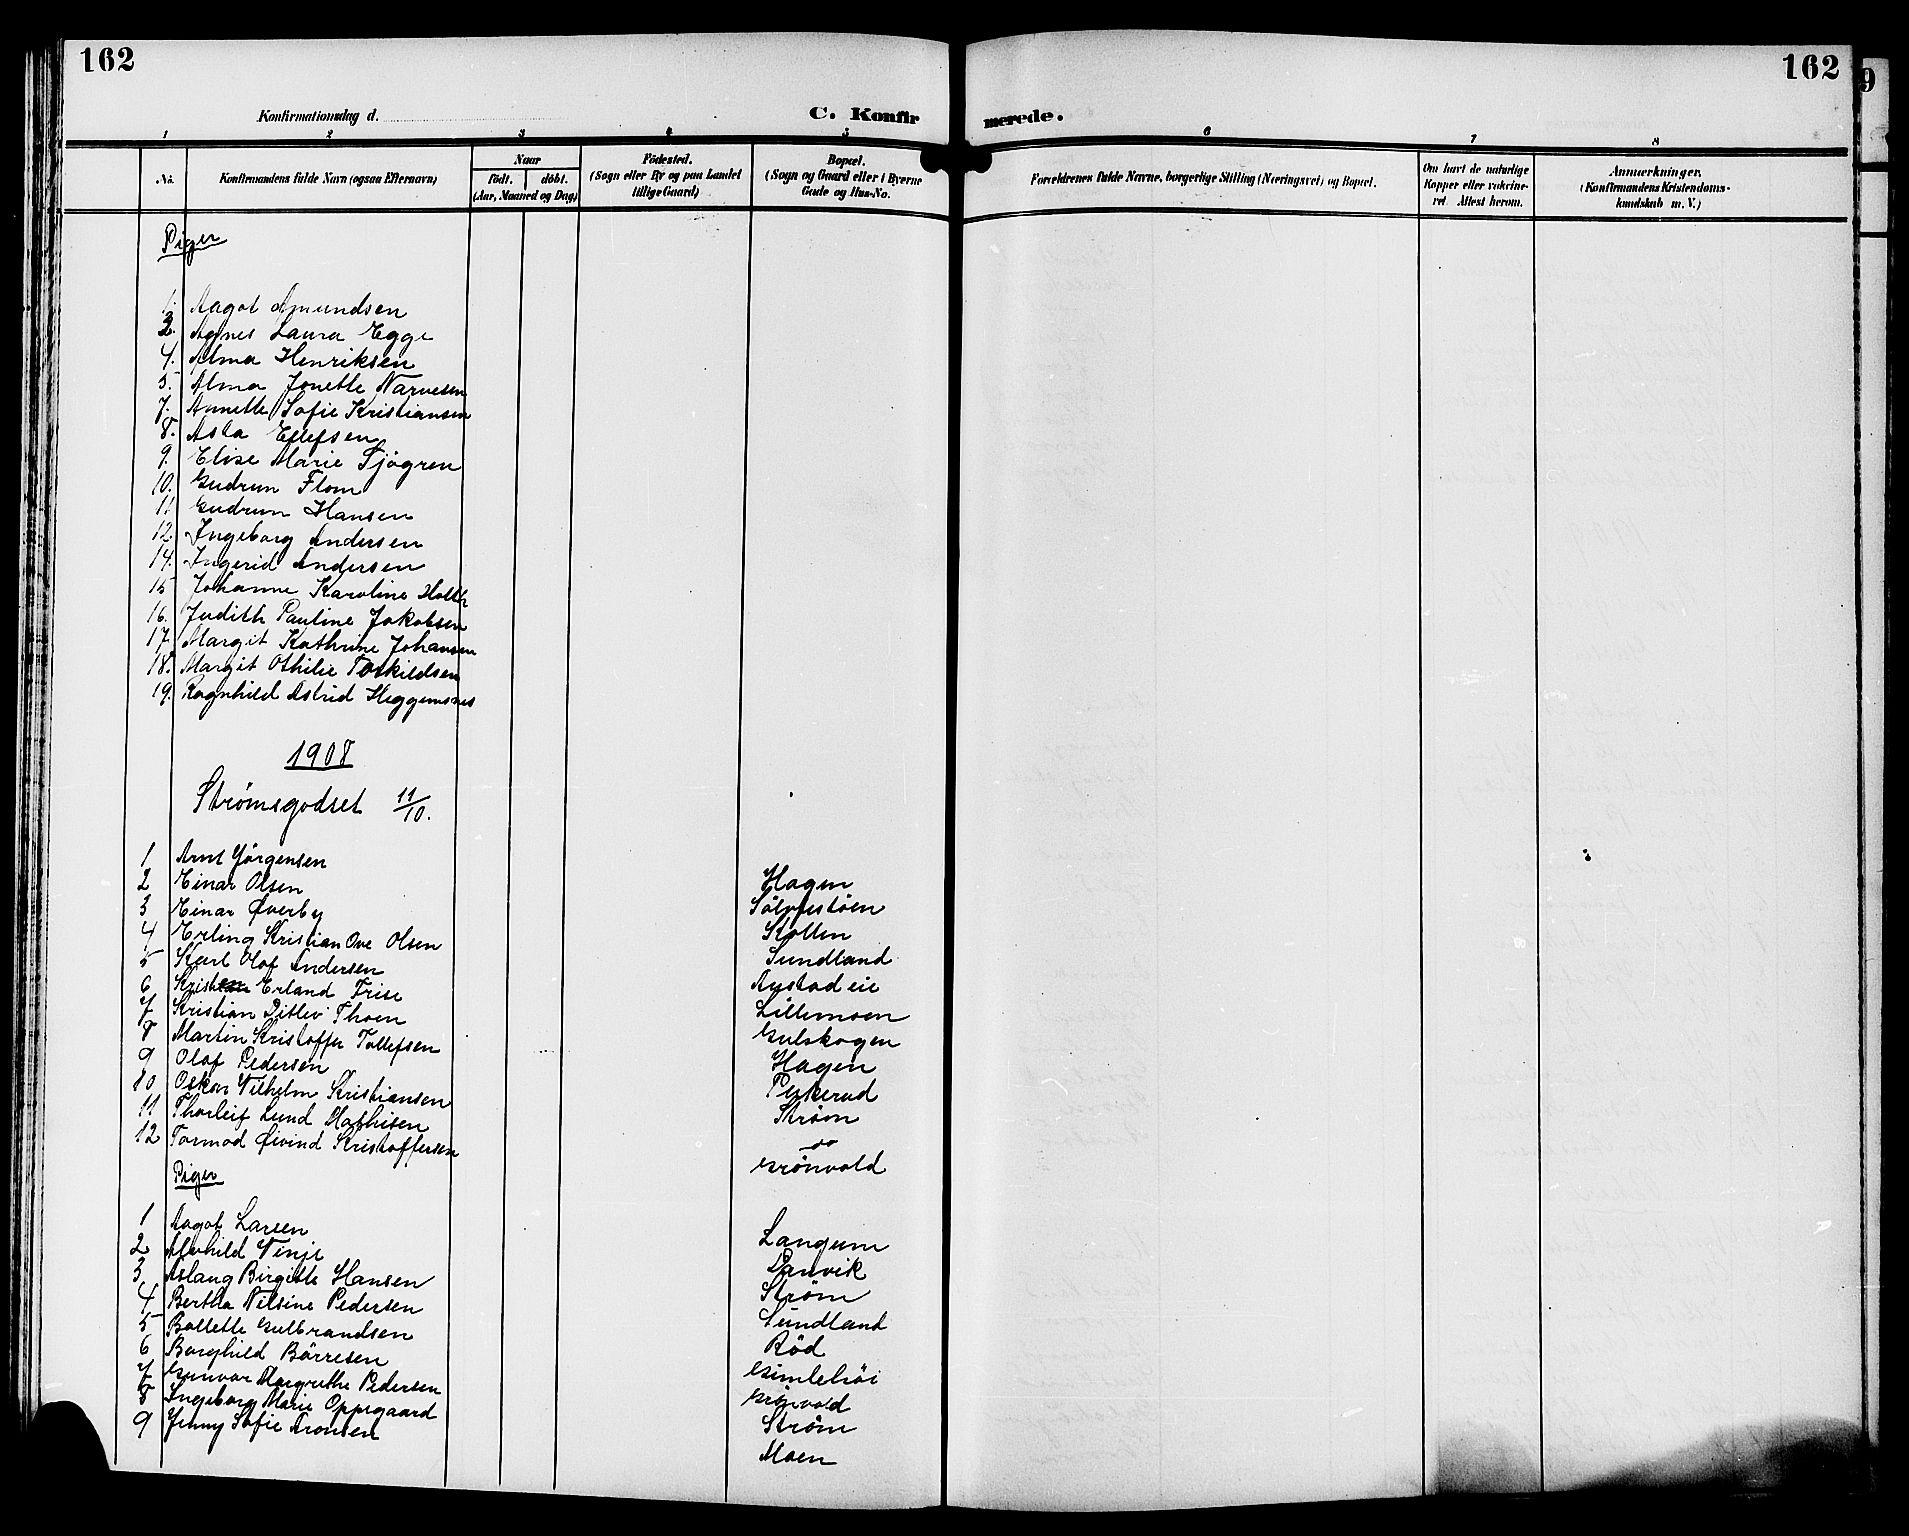 162
162
Konfirmationsdag d.
C. Konfirmerede.
1 2 3 4 5 6 7 8
No.
Konfirmandens fulde Navn (ogsaa Efternavn)
Naar
født. døbt.
(Aar, Maaned og Dag)
Födested.
(Sogn eller By og paa Landet
tillige Gaard)
Bopæl.
(Sogn og Gaard eller i Byerne
Gade og Hus-No.
Forældrenes fulde Navne, borgerlige Stilling (Næringsvei) og Bopæl.
Om havt de naturlige
Kopper eller vakcine-
ret Attest herom.
Anmærkninger.
(Konfirmandens Kristendoms-
kundskab m. V.)
Piger
1. Aagot Amundsen
2. Agnes Laura Egge
4. Alma Henriksen
5. Alma Jonette Narvesen
7. Annette Sofie Kristiansen
8. Asta Ellefsen
9. Elise Marie Sjögren
10. Gudrun Flom
11. Gudrun Hansen
12 Ingeborg Andersen
14. Ingerid Andersen
15 Johanne Karoline Holth
16. Judith Pauline Jakobsen
17. Margit Kathrine Johansen
18. Margit Othilie Torkildsen
19. Ragnhild Astrid Heggemsnes
1908
Strømsgodset 11/10.
1 Arnt Jörgensen
2 Einar Olsen Hagen
3 Einar Øverby Sölvfastöen
4 Erling Kristian Ove Olsen Kollen
5 Karl Olaf Andersen Sundland
6 Kristen Erland Frise Austad eie
7 Kristian Ditlev Thoen Lillemoen
8 Martin Kristoffer Tollefsen Gulskogen
9 Olaf Pedersen Hagen
10 Oskar Vilhelm Kristiansen Peskerud
11 Thorleif Lund Mathisen Strøm
12 Tormod Øivind Kristoffersen do
Grönvold
Piger
1 Aagot Larsen Langum
2 Alvhild Vinje Danvik
3 Aslaug Birgitte Hansen Strøm
4 Bertha Nilsine Pedersen Sundland
5 Bollette Gulbrandsen Röd
6 Borghild Börresen Gimlehöi
7 Gunvor Margrethe Pedersen Grönvold
8 Ingeborg Marie Oppegaard Strøm
9 Jenny Sofie Aronsen Moen